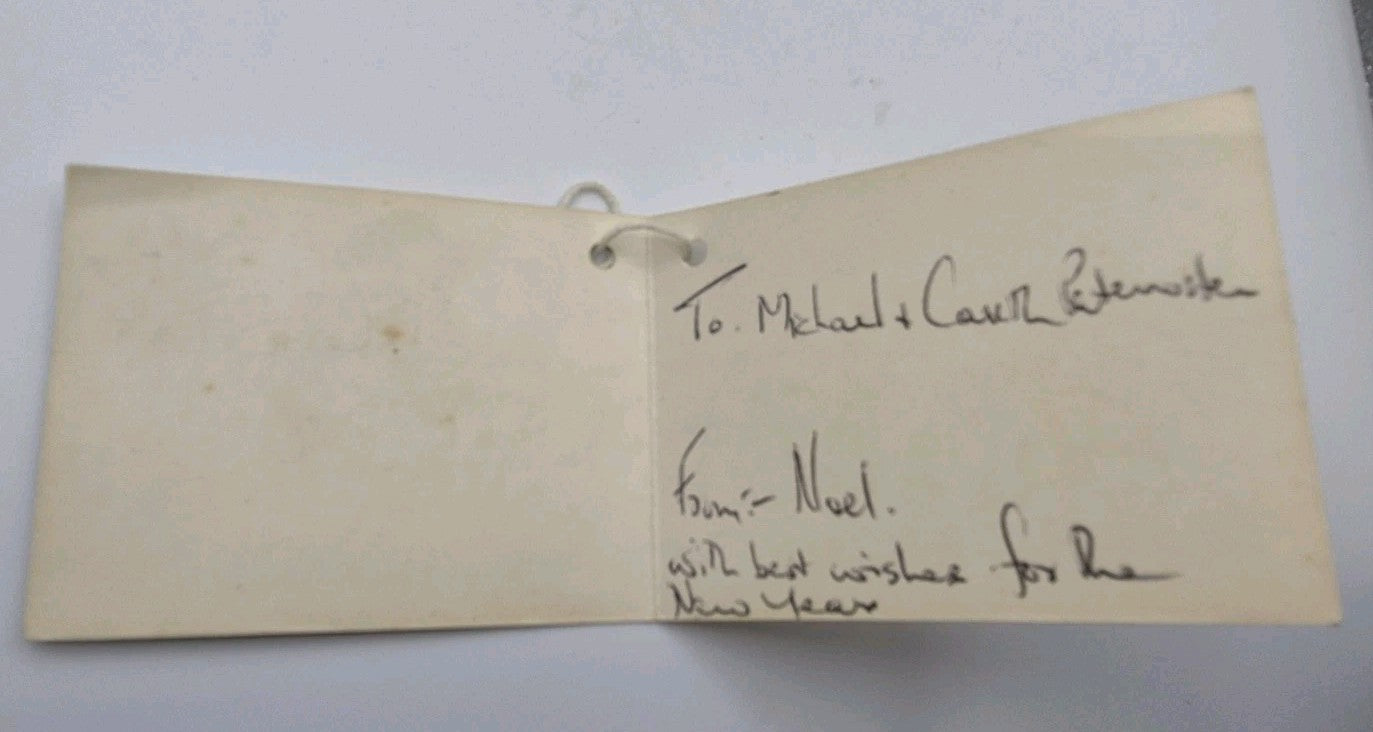 To. Michael + Careth Paternoster
From:- Noel.
with best wishes for the
New Year